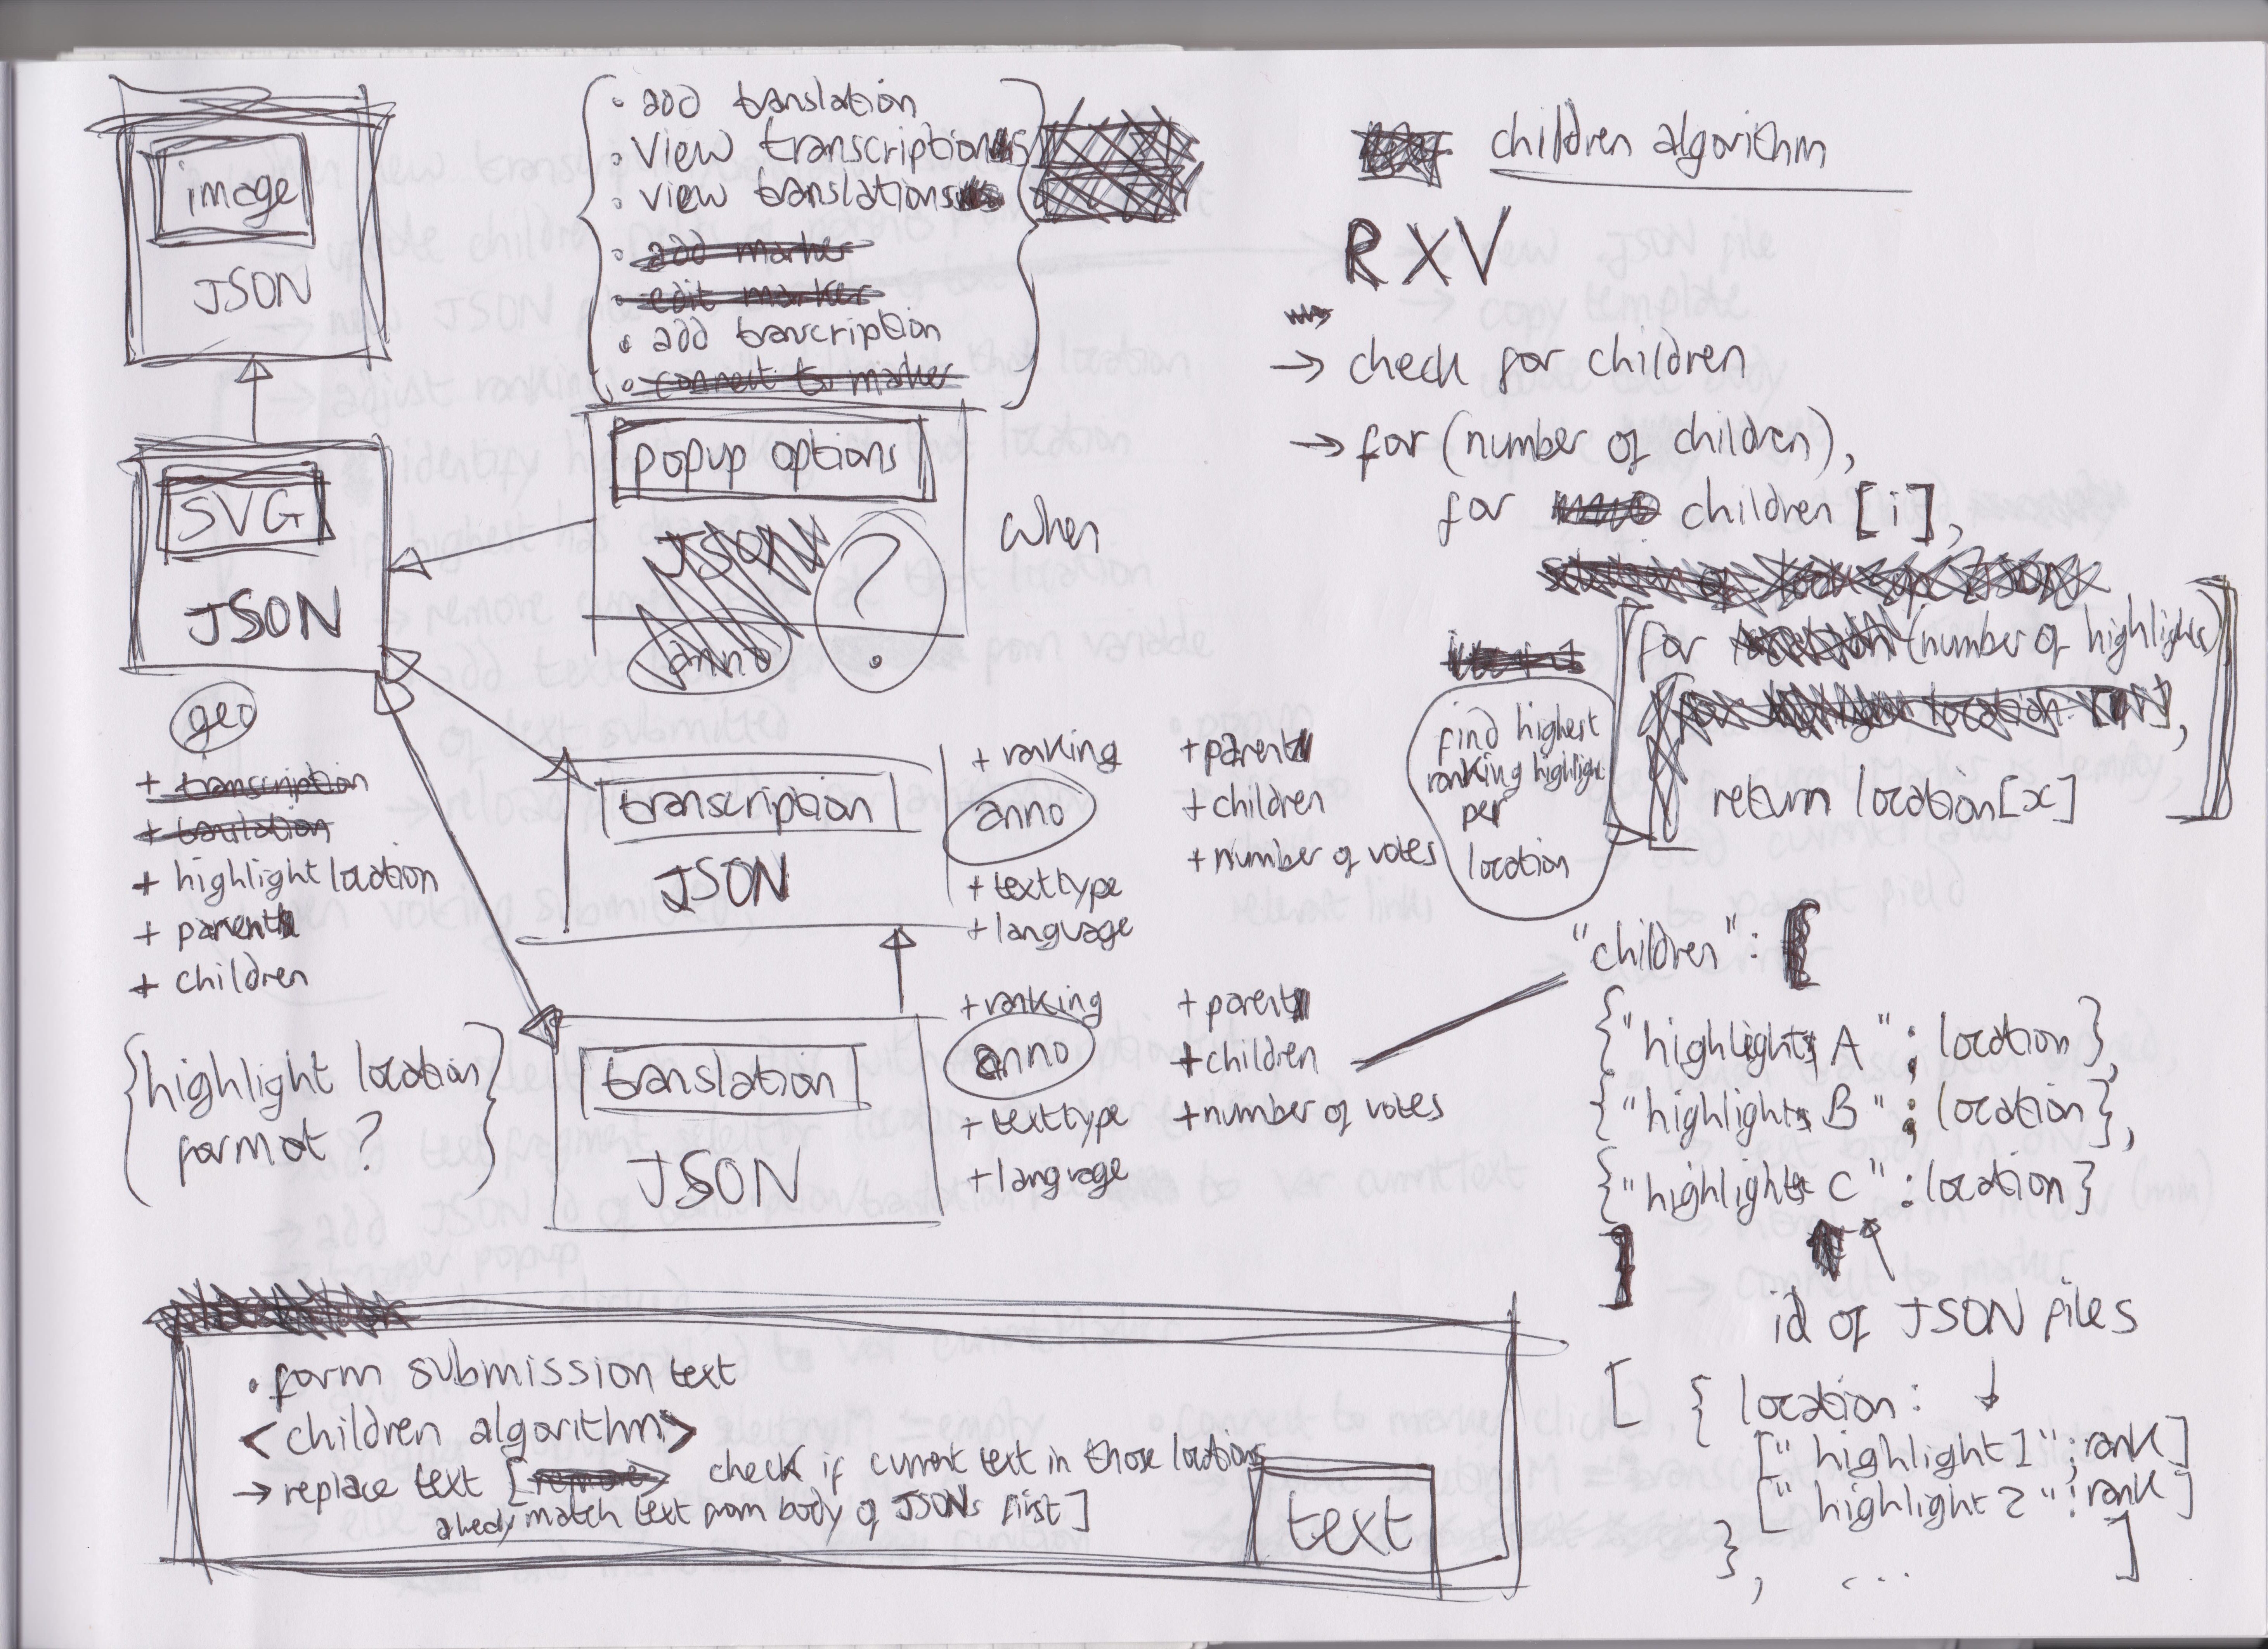 image
JSON
• add translation
• view transcriptions
• view translations
• add marker
• edit marker
• add trancription
• connect to marker
popup options
JSON
anno
?
when
SVG
JSON
geo
+ transcription
+ tanslation
+ highlight location
+ parent
+ children
{highlight location
format ?}
transcription
JSON
+ ranking
anno
+ texttype
+ language
+ parent
+ children
+ number of votes
translation
JSON
+ ranking
anno
+ texttype
+ language
+ parent
+ children
+ number of votes
• form submission text
<children algorithm>
→ replace text [ check if current text in those locations
alredy match text from body of JSONs first]
text
children algorithm
RXV
→ check for children
→ for (number of children),
for children [i],
for (number of highlights)
return location[x]
find highest
ranking highlight
per
location
"children" : [
{"highlight A" : location},
{"highlight B" : location},
{"highlight C" : location}
]
id of JSON files
[ { location:
["highlight 1" : rank]
["highlight 2" : rank]
}, ... ]